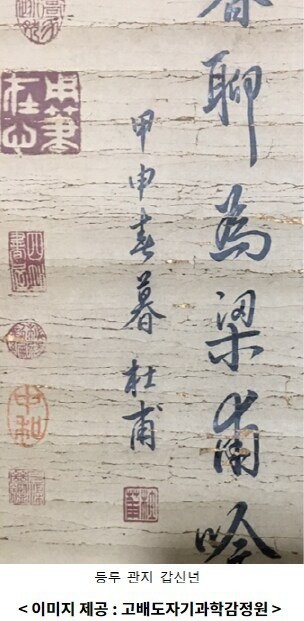 聊為梁甫吟
甲申春暮 杜甫
用筆在心
中和
등루 관지 갑신년
< 이미지 제공 : 고배도자기과학감정원 >